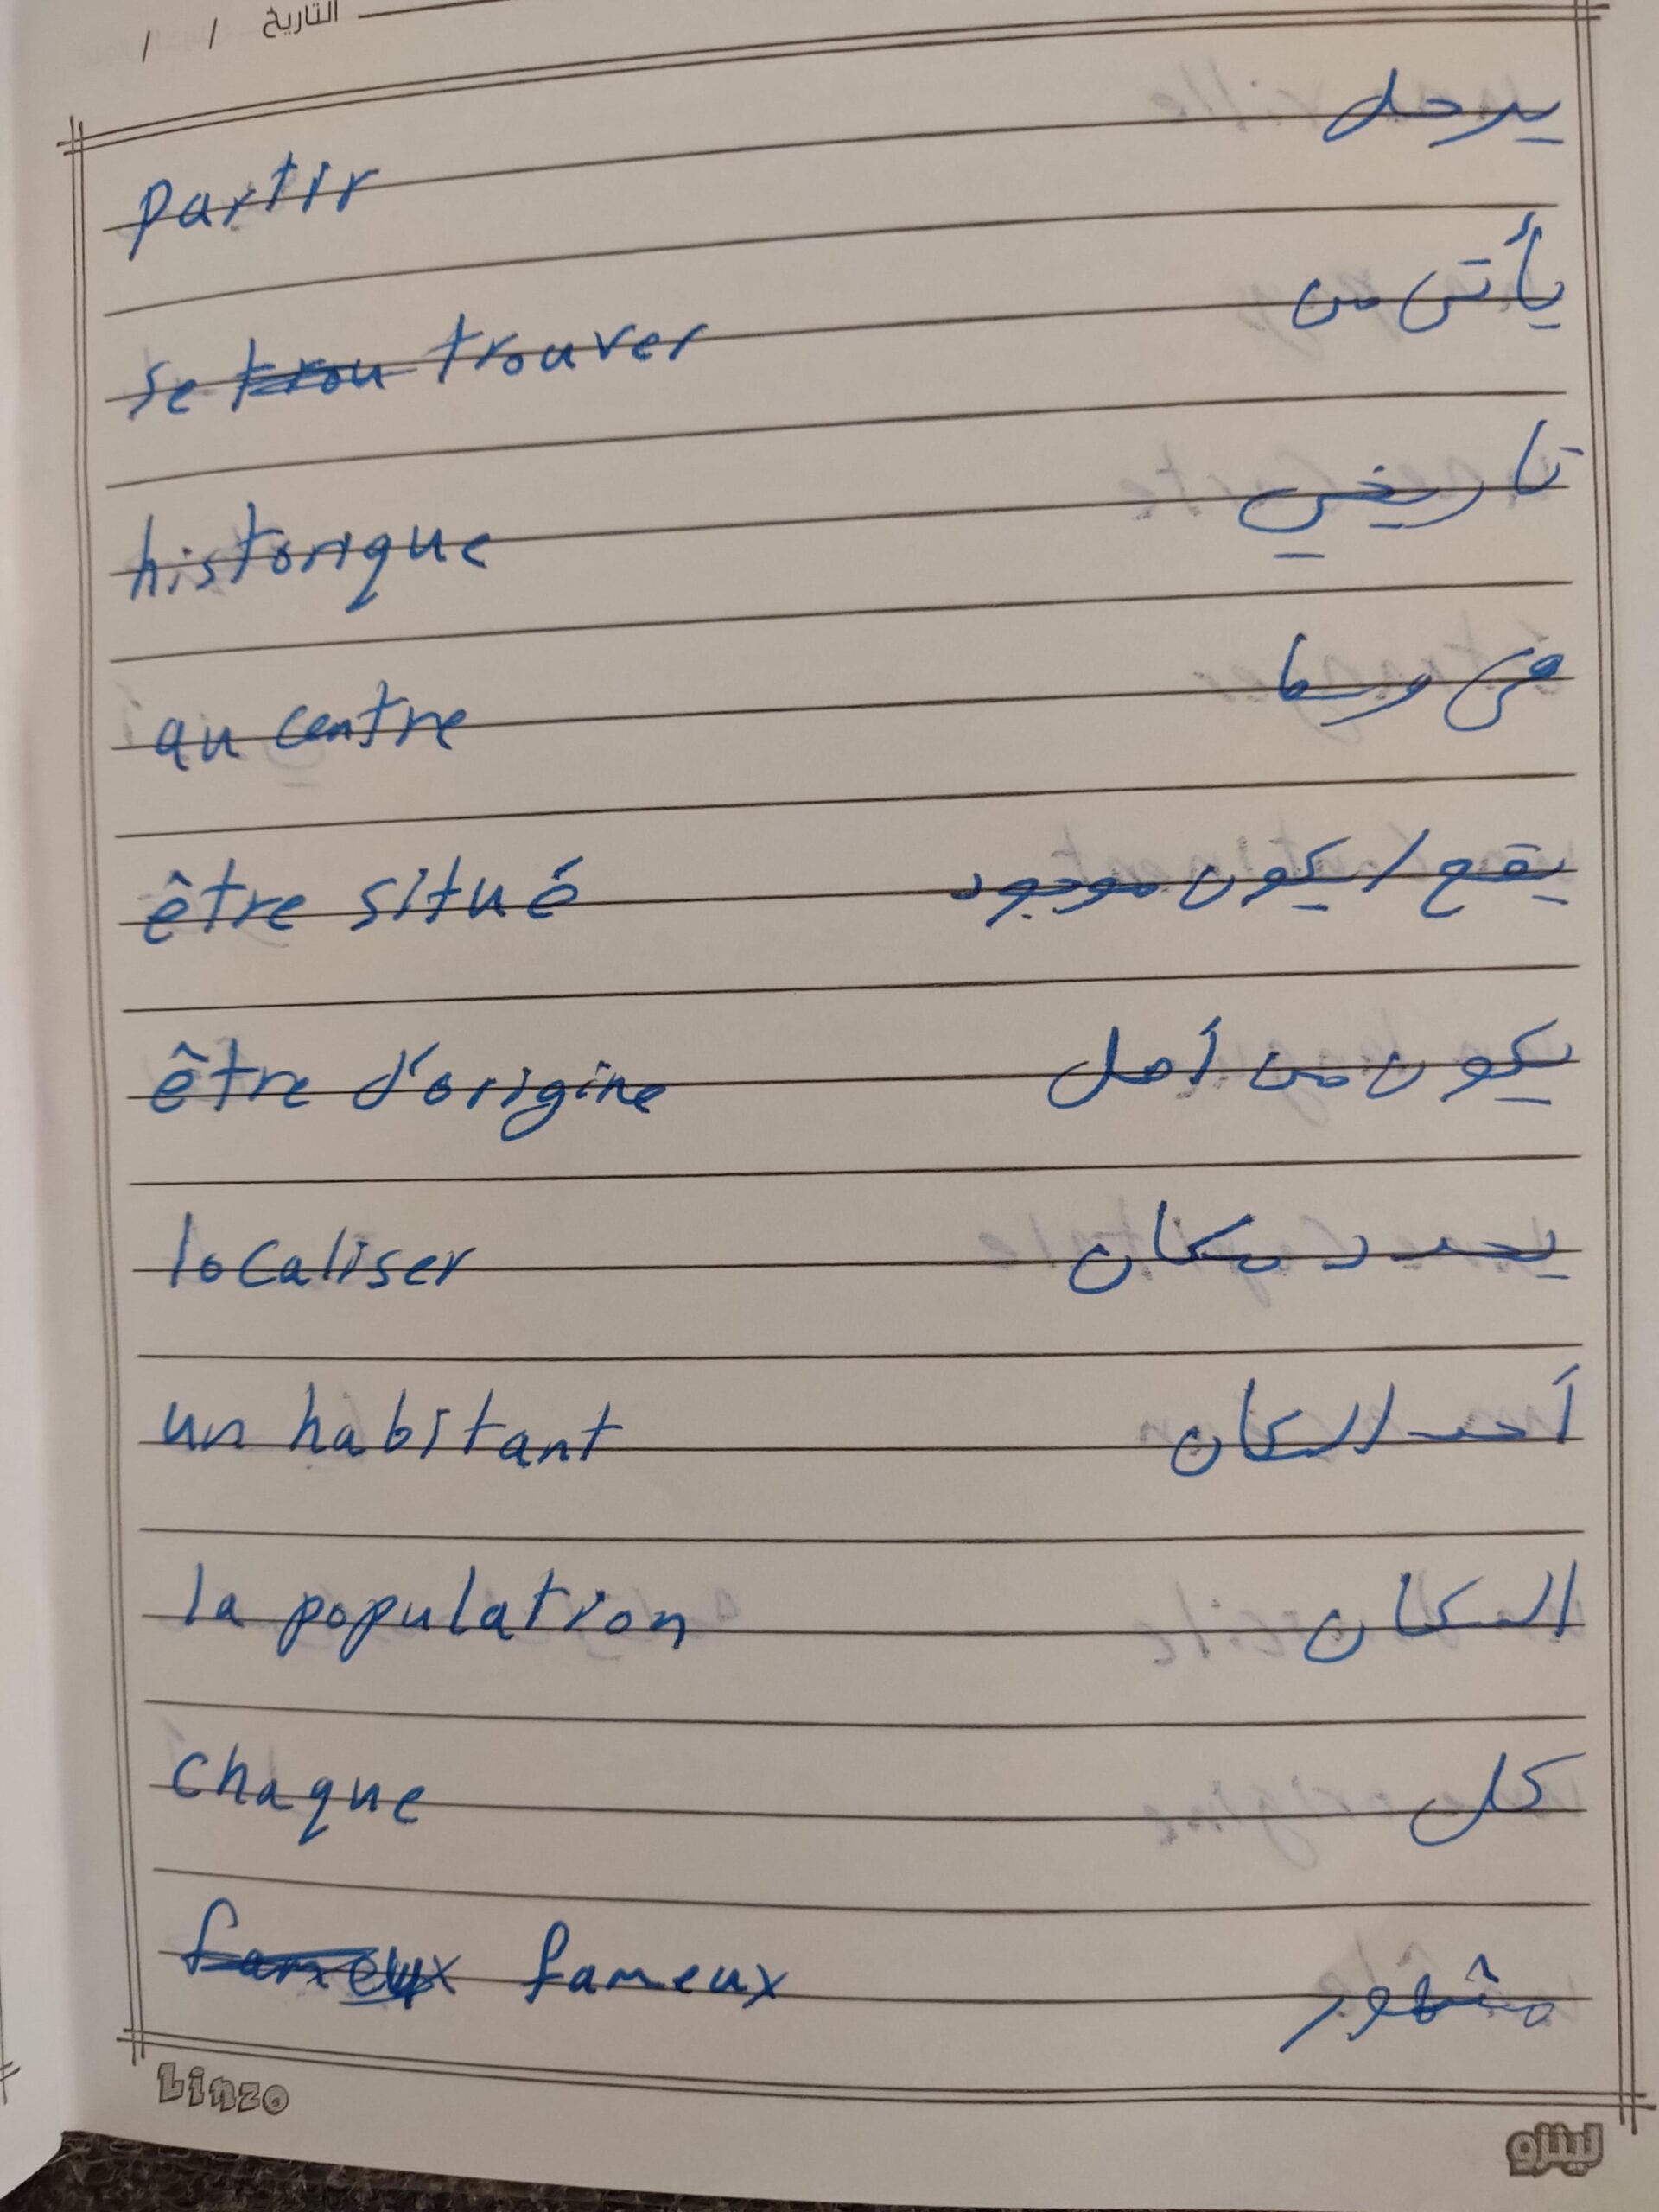 التاريخ / /
partir يرحل
se trou trouver يأتى من
historique تاريخي
au centre فى وسط
être situé يقع / يكون موجود
être d'origine يكون من أصل
localiser يحدد مكان
un habitant أحد السكان
la population السكان
chaque كل
fameux fameux مشهور
Linzo لينزو